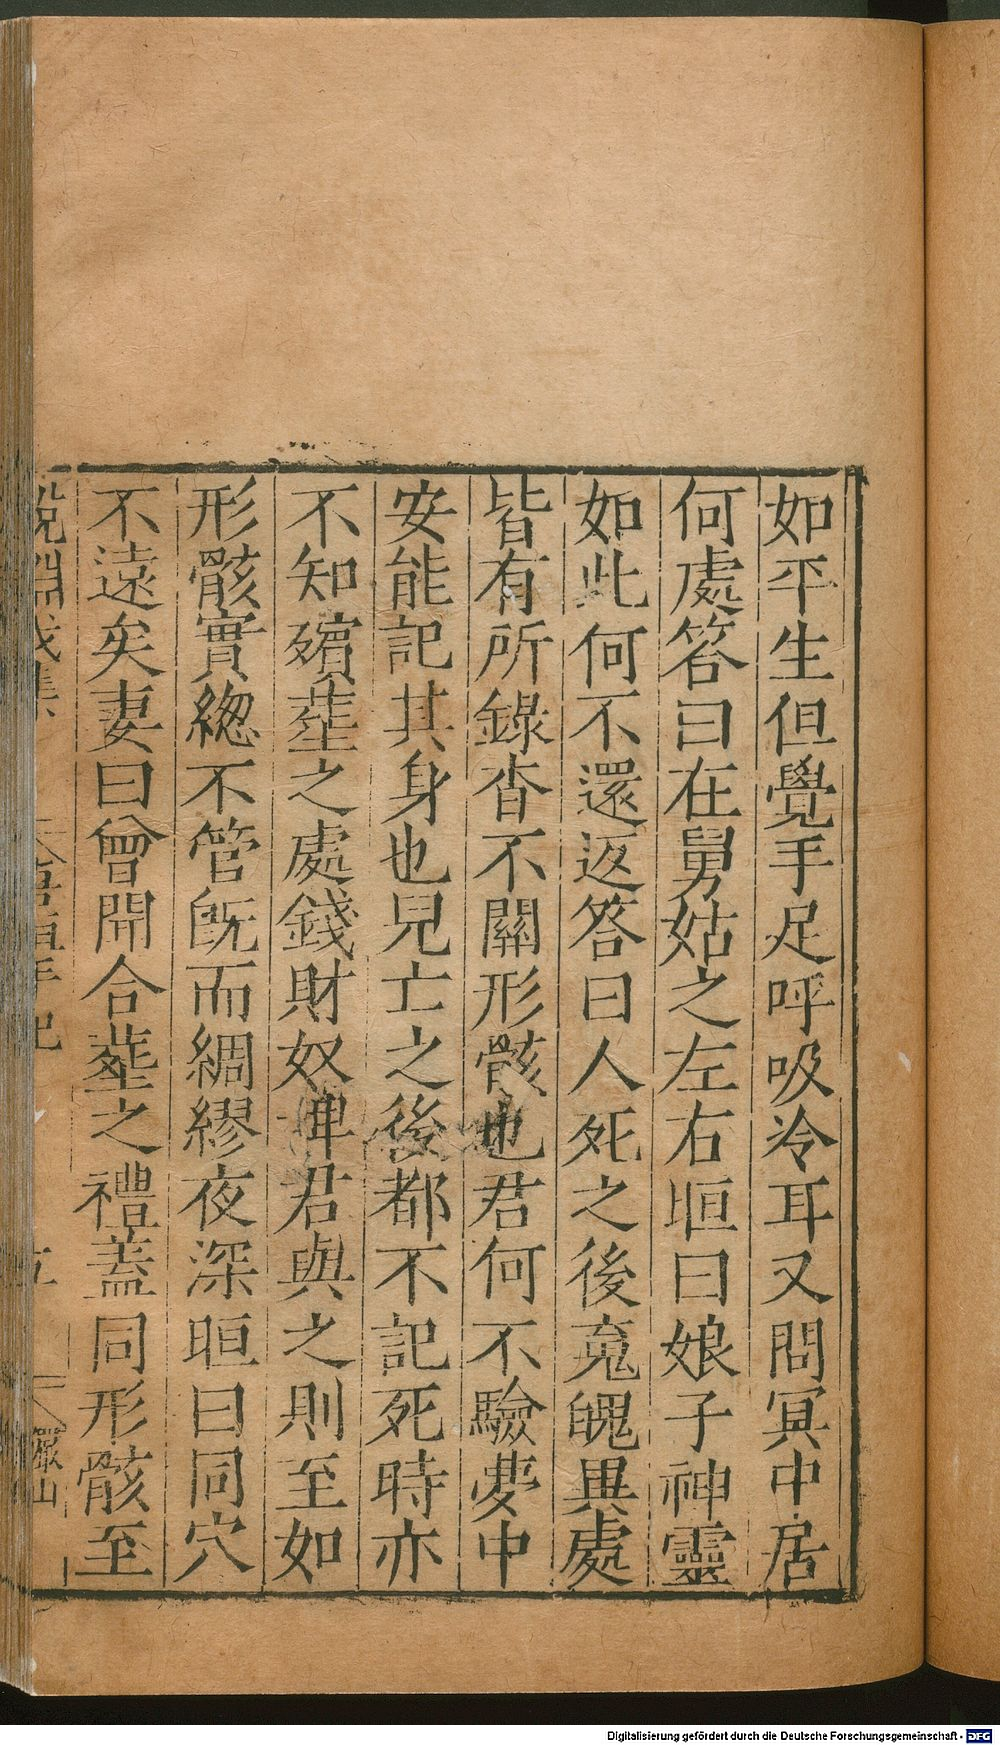 如平生但覺手足呼吸冷耳又問冥中居
何處答曰在舅姑之左右晅曰娘子神靈
如此何不還返答曰人死之後䰟魄異處
皆有所錄杳不關形骸也君何不驗夢中
安能記其身也兒亡之後都不記死時亦
不知殯塟之處錢財奴婢君與之則至如
形骸實緫不管旣而綢繆夜深晅曰同穴
不遠矣妻曰曾聞合塟之禮蓋同形骸至
說淵戊集
五
Digitalisierung gefördert durch die Deutsche Forschungsgemeinschaft - DFG